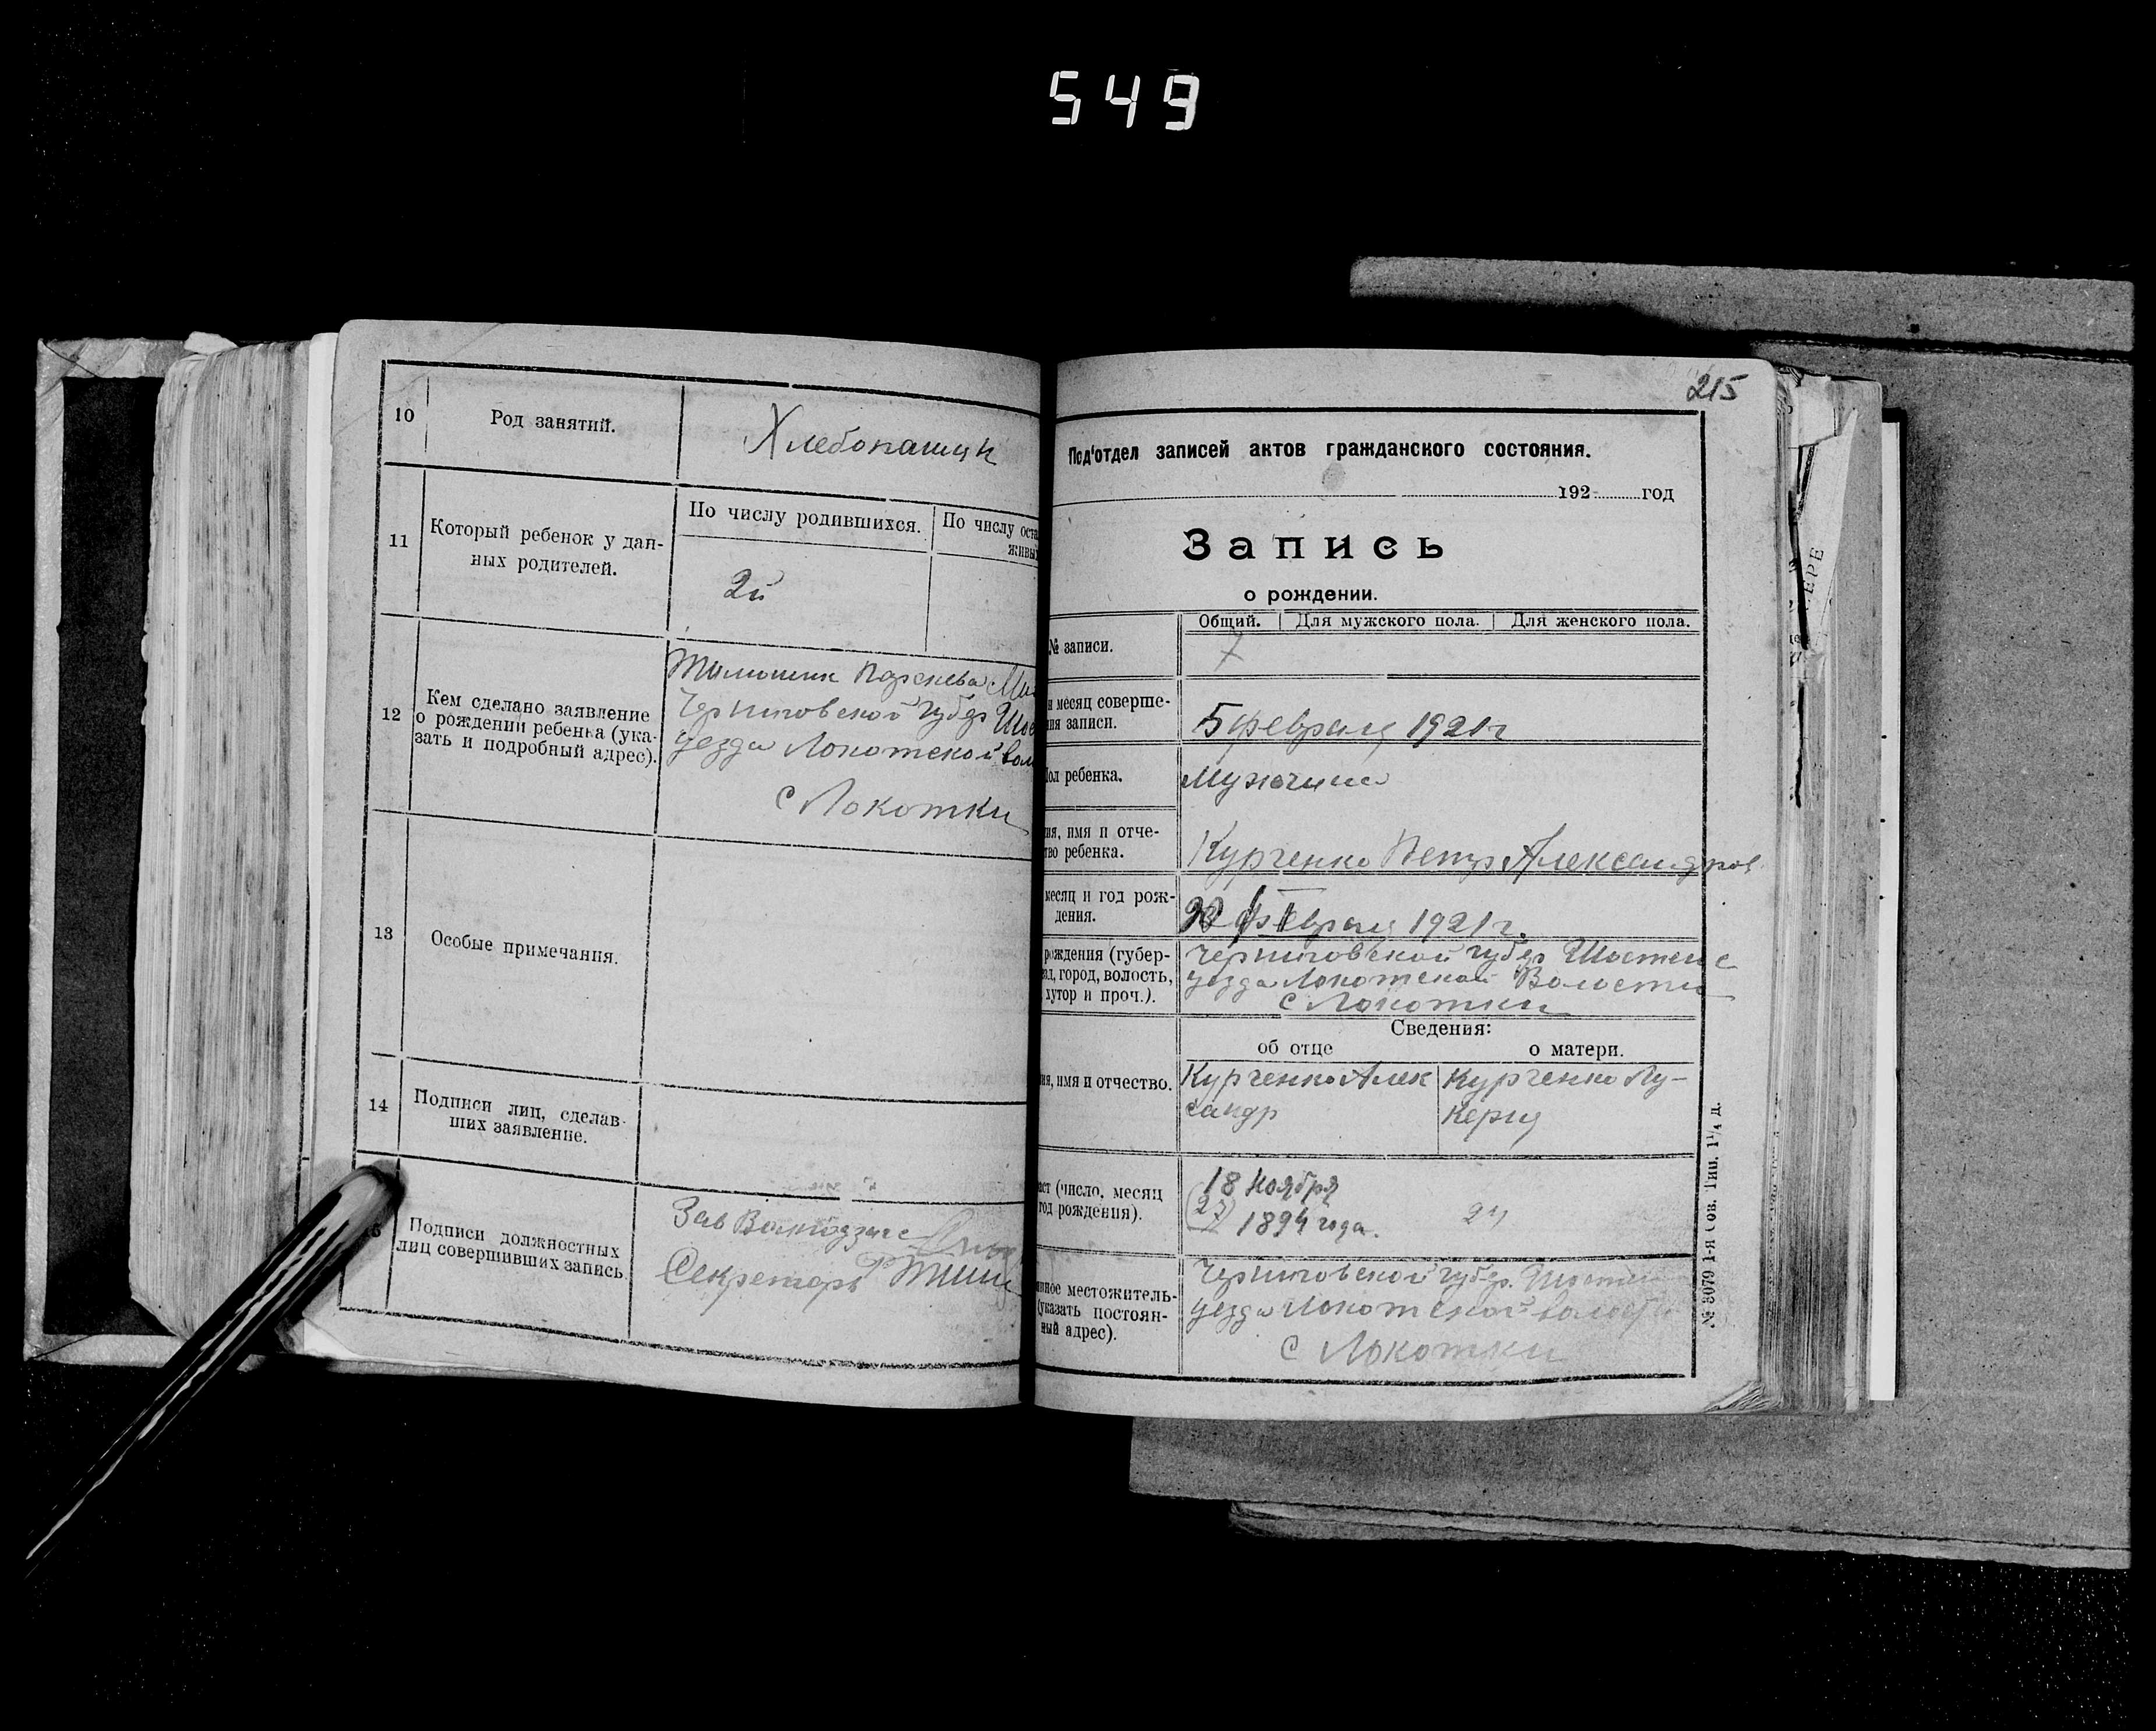 549
10
Род занятий.
Хлебопашцы
11
Который ребенок у дан-
ных родителей.
По числу родившихся.
По числу оста
живых
2й
12
Кем сделано заявление
о рождении ребенка (ука-
зать и подробный адрес).
Черниговской губер Шос
уезда Локотской вол
с Локотки
13
Особые примечания.
14
Подписи лиц, сделав-
ших заявление.
Подписи должностных
лиц совершивших запись.
Зав
Секретарь
215
Под'отдел записей актов гражданского состояния.
192 год
Запись
о рождении.
№ записи.
Общий. Для мужского пола. Для женского пола.
7
и месяц соверше-
ния записи.
5 февраля 1921 г
Пол ребенка.
Мужчина
ия, имя и отче-
тво ребенка.
Курченко Петр Александров
месяц и год рож-
дения.
февраля 1921 г.
рождения (губер-
зд, город, волость,
хутор и проч.).
Черниговской губер Шостенс
уезда Локотской Волости
с Локотки
Сведения:
об отце
о матери.
ия, имя и отчество.
Курченко Алек
сандр
Курченко Лу-
керия
аст (число, месяц
год рождения).
18 Ноября
(27) 1894 года.
янное местожитель-
(указать постоян-
ный адрес).
Черниговской губер. Шостен
уезда Локотской волости
с Локотки
№ 3079 1-я Сов. Тип. 1¼ д.